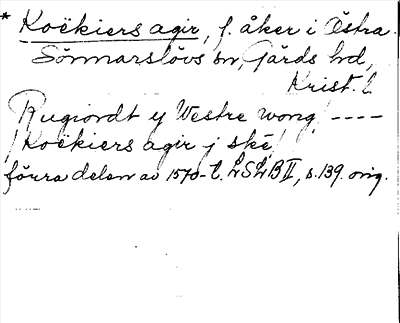 * Koëkiers agir, f. åker i Östra
Sönnarslövs sn, Gärds hd,
Krist. l
Rugiordt y Westre wong, ----
/Koëkiers agir j ské/
förra delen av 1570-t. LSLB II, s. 139. orig.